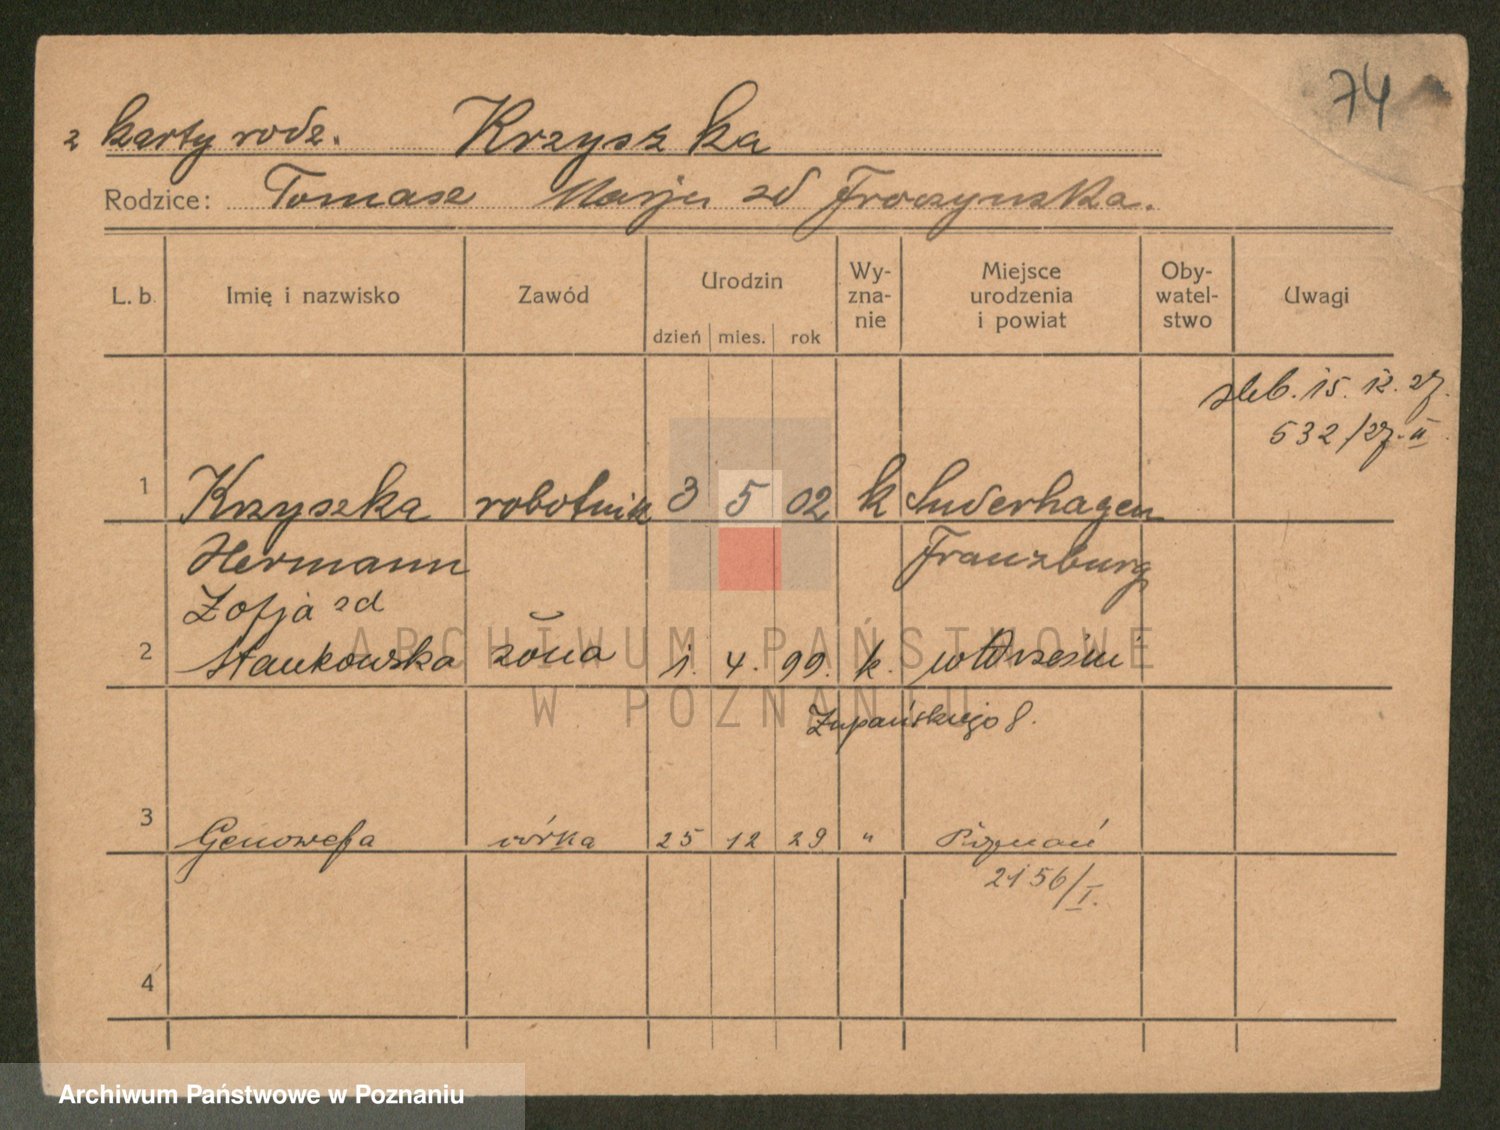 74
z karty rodz. Krzyszka
Rodzice: Tomasz Marja zd Froczynska.
L. b. Imię i nazwisko Zawód Urodzin dzień mies. rok Wy-zna-nie Miejsce urodzenia i powiat Oby-watel-stwo Uwagi
ślub. 15. 12. 27.
532/27. II
1 Krzyszka robotnik 3 5 02 k Suderhagen
Hermann Franzburg
Zofja zd
2 Stankowska żona 1. 4. 99. k. Września
Żupańskiego 8.
3 Genowefa córka 25 12 29 " Poznań
2156/I.
4
ARCHIWUM PAŃSTWOWE
W POZNANIU
Archiwum Państwowe w Poznaniu